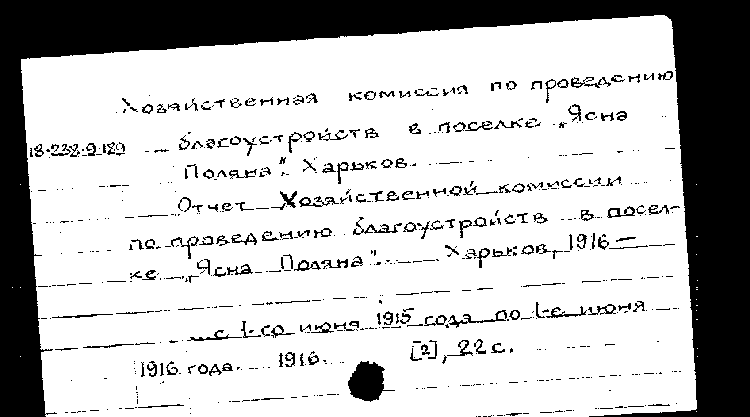 Хозяйственная комиссия по проведению
18-238-9-189 благоустройств в поселке „Ясна
Поляна". Харьков.
Отчет Хозяйственной комиссии
по проведению благоустройств в посел-
ке „Ясна Поляна". Харьков, 1916 —
...с 1-го июня 1915 года по 1-е июня
1916 года. 1916. [2], 22 с.